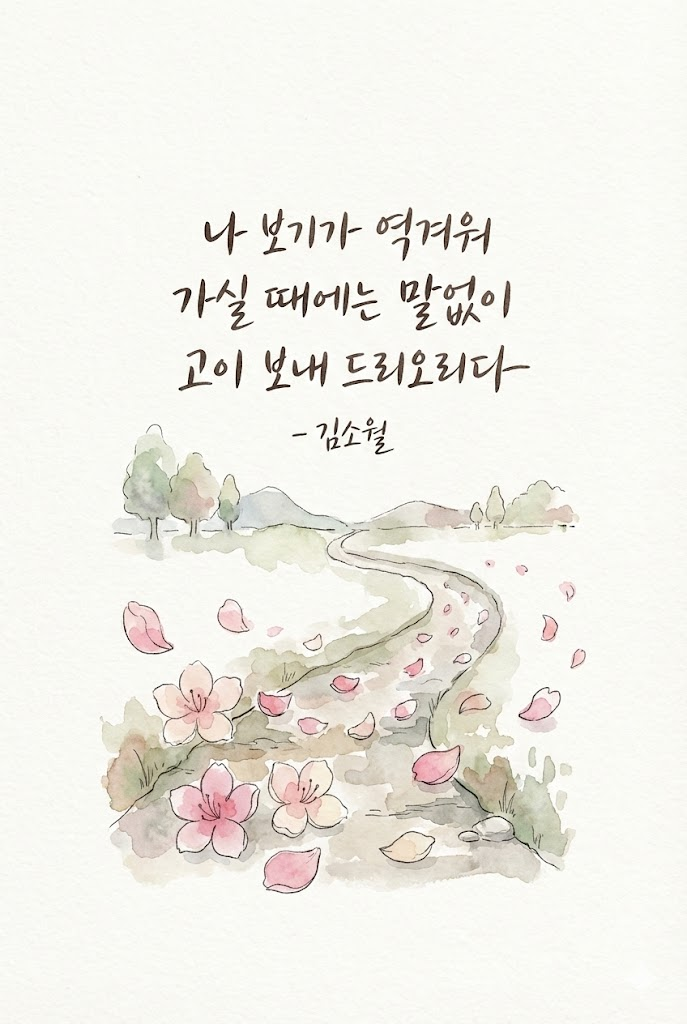 나 보기가 역겨워
가실 때에는 말없이
고이 보내 드리오리다
- 김소월